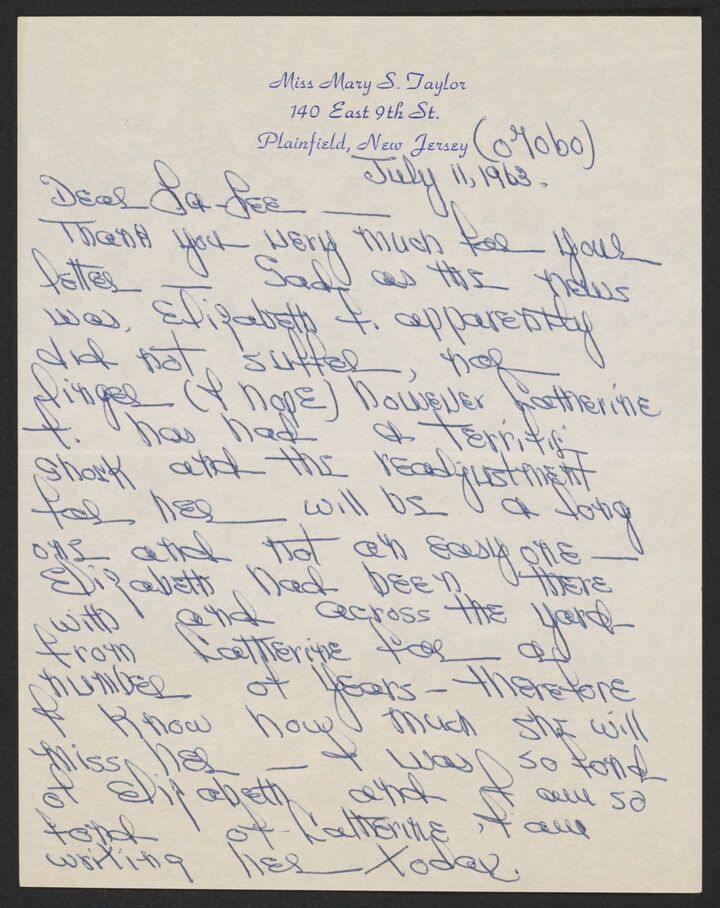 Miss Mary S. Taylor
140 East 9th St.
Plainfield, New Jersey (07060)
July 11, 1963.
Dear La-Lee —
Thank you very much for your
letter — Sad, as the news
was, Elizabeth F. apparently
did not suffer, nor
linger (I hope) however Catherine
F. has had a terrific
shock and the readjustment
for her will be a long
one and not an easy one —
Elizabeth had been there
with and across the yard
from Catherine for a
number of years – therefore
I know how much she will
miss her — I was so fond
of Elizabeth and I am so
fond of Catherine, I am
writing her today.